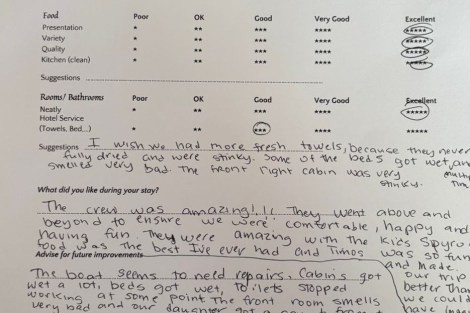 Food Poor OK Good Very Good Excellent
Presentation * ** *** **** *****
Variety * ** *** **** *****
Quality * ** *** **** *****
Kitchen (clean) * ** *** **** *****
Suggestions
Rooms/Bathrooms Poor OK Good Very Good Excellent
Neatly * ** *** **** *****
Hotel Service
(Towels, Bed...) * ** *** **** *****
Suggestions I wish we had more fresh towels, because they never
fully dried and were stinky. Some of the beds got wet, and
smelled very bad. The front right cabin was very
stinky.
What did you like during your stay?
The crew was amazing!!! They went above and
beyond to ensure we were comfortable, happy and
having fun. They were amazing with the kids. Spyro
food was the best I've ever had and Timos was so fun
Advise for future improvements and made
our trip
better than
we could
have
The boat seems to need repairs. Cabins got
wet a lot, beds got wet, toilets stopped
working at some point. The front room smells
very bad and our daughter got a